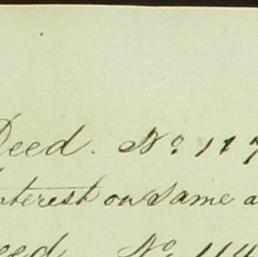 Deed. No. 117
Interest on Same a
Deed No. 114